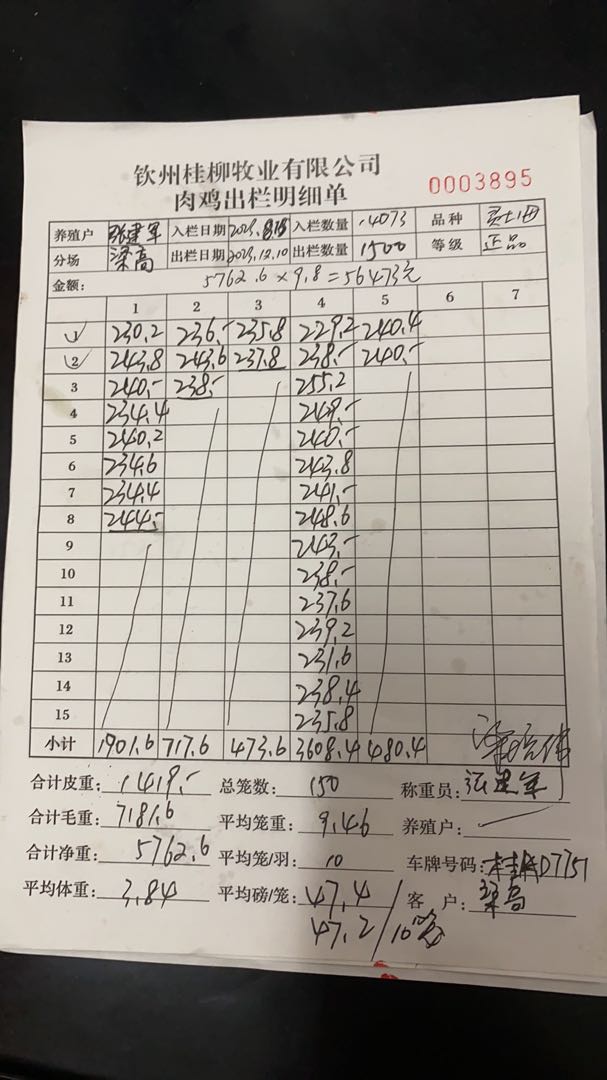 钦州桂柳牧业有限公司
肉鸡出栏明细单
0003895
养殖户 张建军 入栏日期 入栏数量 14073 品种
分场 梁高 出栏日期 2023.12.10 出栏数量 1500 等级 正品
金额: 5762.6×9.8=56473元
1 2 3 4 5 6 7
1 230.2 236.- 235.8 229.2 240.4
2 243.8 243.6 237.8 238.- 240.-
3 240.- 238.- 255.2
4 234.4 249.-
5 240.2 240.-
6 234.6 243.8
7 234.4 241.-
8 244.- 248.6
9 243.-
10 238.-
11 237.6
12 239.2
13 231.6
14 238.4
15 235.8
小计 1901.6 717.6 473.6 3608.4 480.4
合计皮重: 1419.- 总笼数: 150 称重员: 张建军
合计毛重: 7181.6 平均笼重: 9.46 养殖户:
合计净重: 5762.6 平均笼/羽: 10 车牌号码: 桂AD7751
平均体重: 3.84 平均磅/笼: 47.4 客户: 梁高
47.2/10